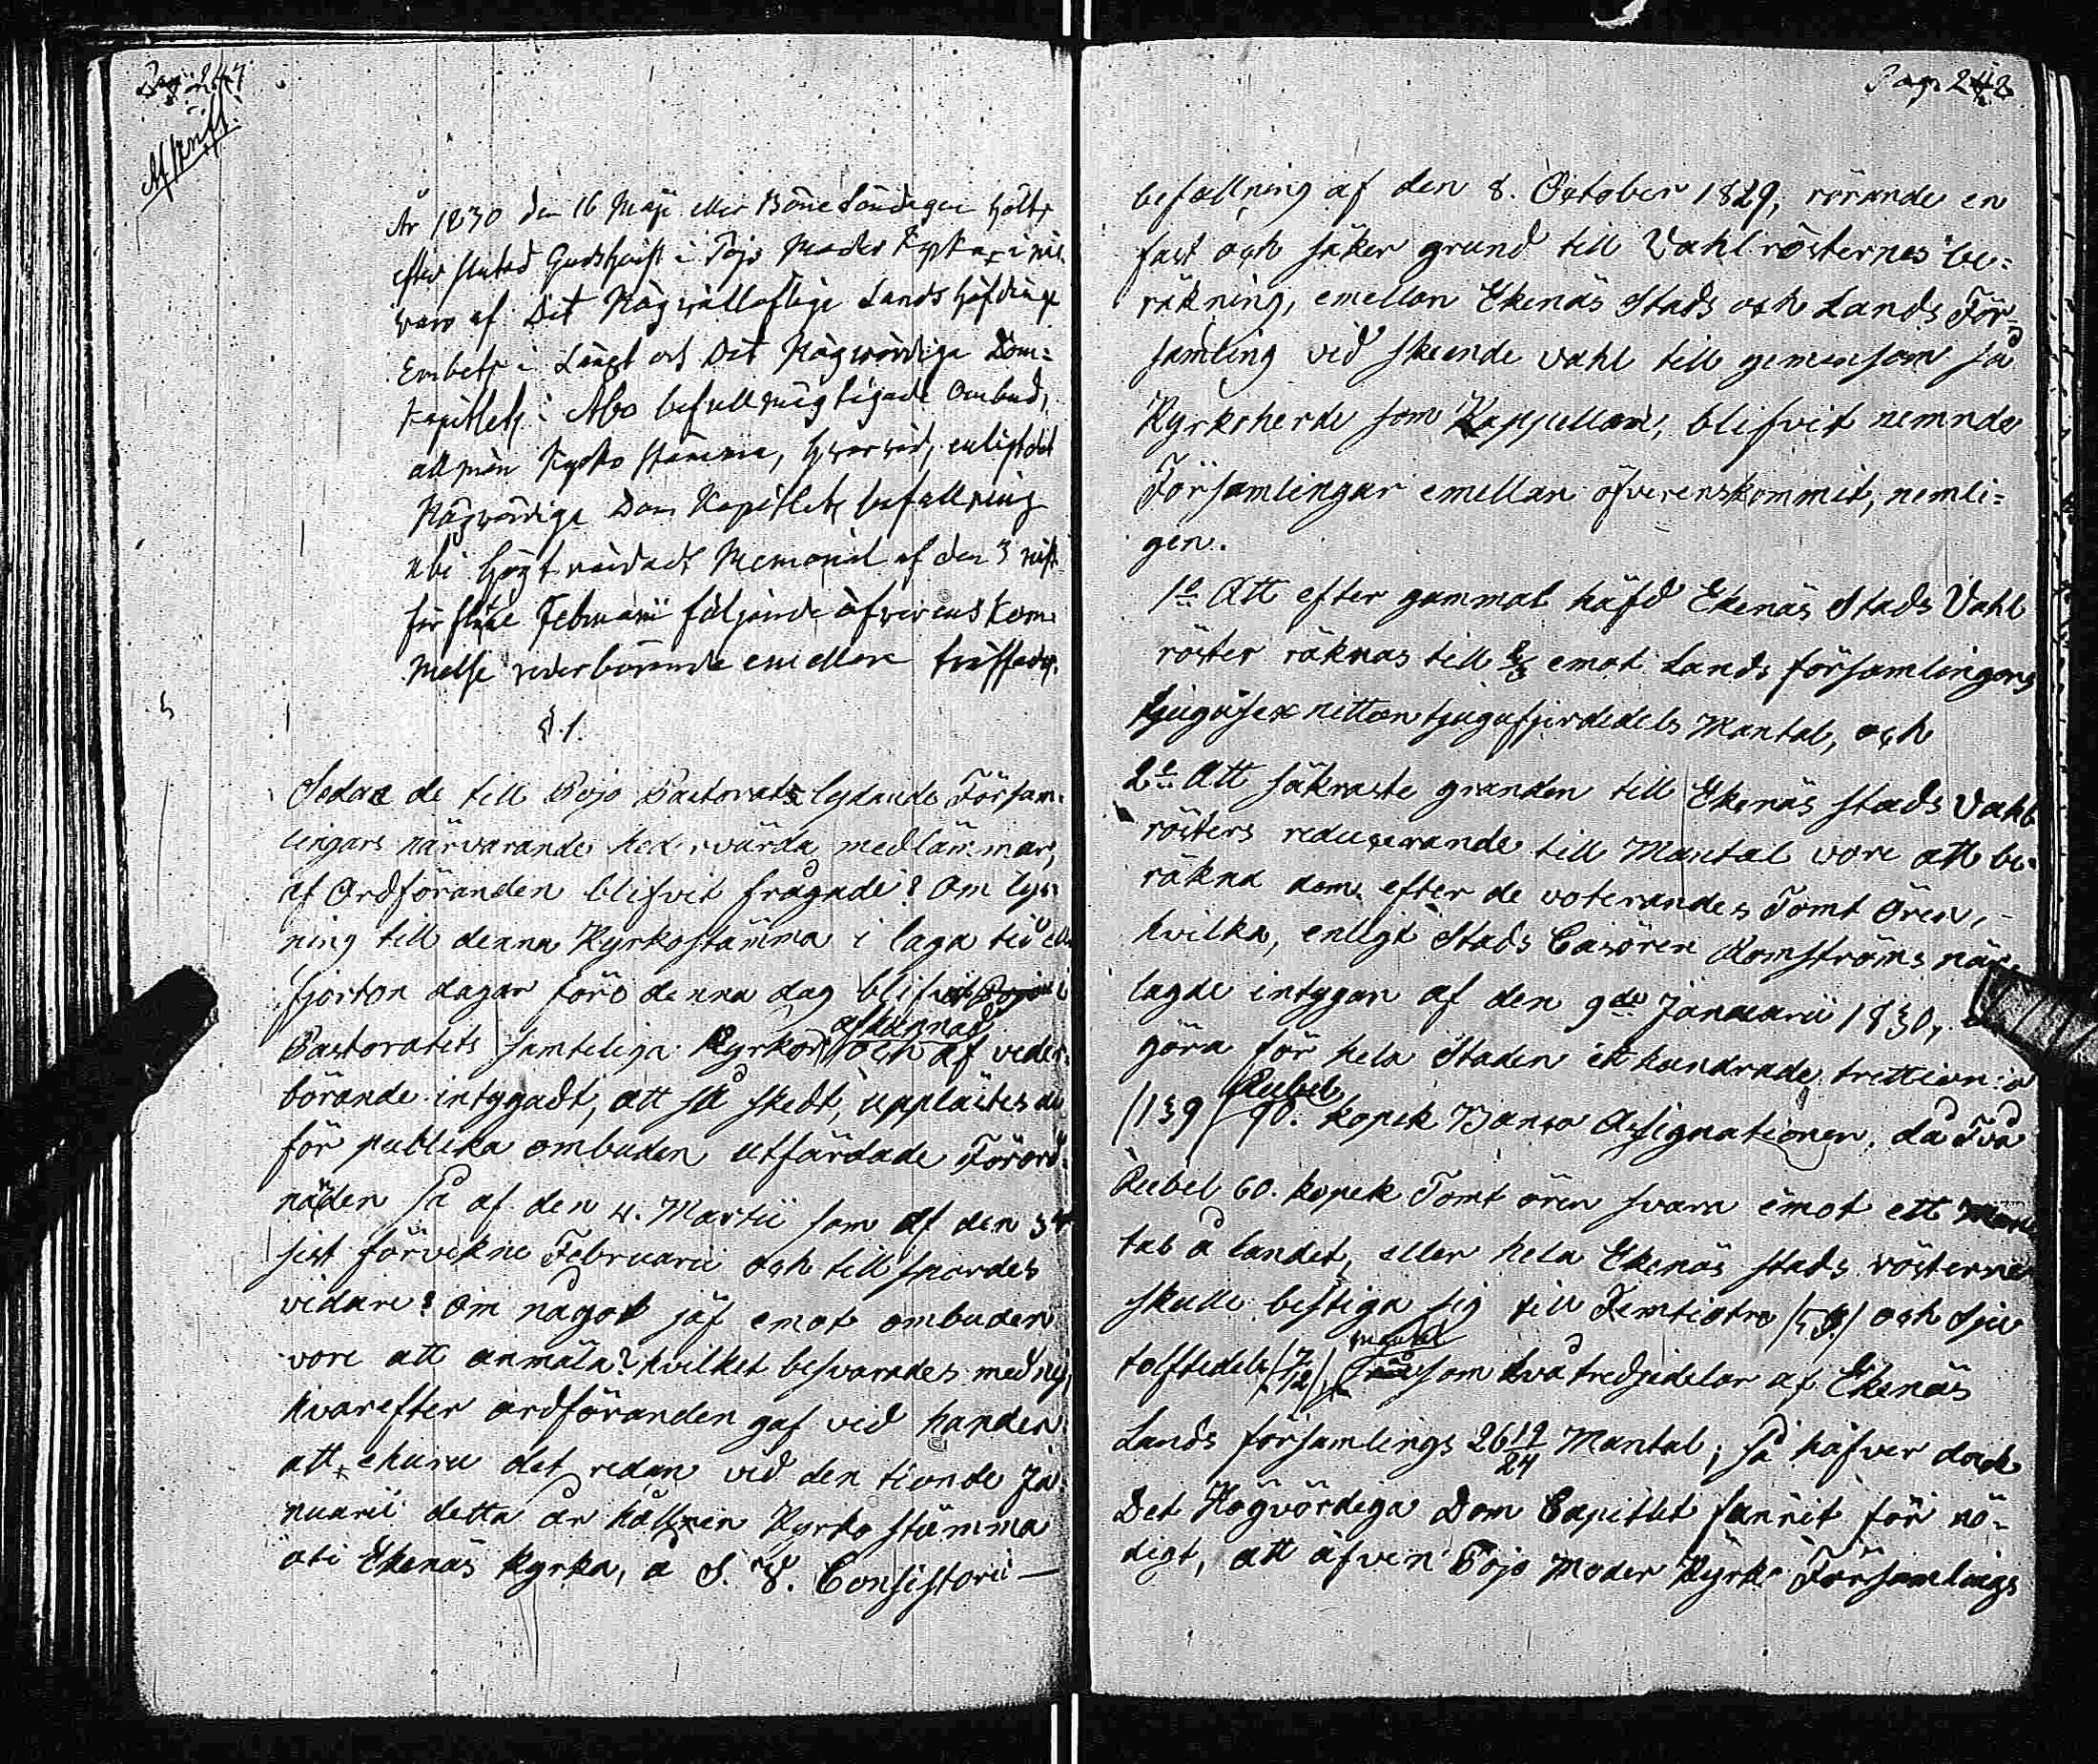 Pag: 247
Afskrift.
År 1830 den 16 Maji eller Böne Söndagen hölts
efter slutad Gudstjenst i Pojo Moder Kyrka i när-
varo af Det Högvälloflige Lands höfdinge
Embets i Länet och Det Högvördiga Dom=
Kapitlets i Åbo befullmägtigade Ombud,
allmän Kyrko stämma, hvarvid, enligt det
Högvördiga Dom Kapitlets befallning
uti högt värdadt Memorial af den 3 sist
för flutne Februarii följande öfverens kom-
melse vederbörande emellan träffades.
§. 1.
Sedan de till Pojo Pastorats lydande Försam-
lingars närvarande hedervärda medlämmar,
af Ordföranden blifvit frågade? Om lys-
ning till denna Kyrkostämma i laga tid eller
fjorton dagar före denna dag blifvit Pojo i
Pastoratets samteliga Kyrkor afkunnad och af veder-
börande intygadt, att så skedt, upplästes de
för publika ombuden utfärdade Förord-
nanden så af den 4. Martii som af den 3
sist förvekne Februarii och till spordes
vidare? Om något jäf emot ombuden
vore att anmäla? hvilket besvarades med nej,
hvarefter ordföranden gaf vid handen
att, ehuru det redan vid den tionde Ja-
nuarii detta år hållnen Kyrko stämma
uti Ekenäs kyrka, å S. V. Consistorii —
Pag: 248
befallning af den 8. October 1829, rörande en
fast och säker grund till Vahl rösternes be-
räkning, emellan Ekenäs Stads och Lands För-
samling vid skeende vahl till gemensam så
Kyrkoherde som Kappellan, blifvit nemnde
Församlingar emellan öfverenskommit, nemli=
gen.
1o Att efter gammal häfd Ekenäs Stads Vahl
röster räknas till 2/3 emot Lands församlingens
tjugusex nitton tjugufjerdedels Mantal, och
2o Att säkraste grunden till Ekenäs stads Vahl
rösters reducerande till Mantal vore att be-
räkna dem efter de voterandes Tomt Ören, -
hvilka, enligt Stads Casören Romströms när-
lagde intygan af den 9de Januarii 1830,
göra för hela Staden ett hundrade trettionio
/139/ Rubel 90. kopek Banco Assignationer, då Två
Rubel 60. kopek Tomt ören svara emot ett Man-
tal å landet, eller hela Ekenäs stads rösterne
skulle bestiga sig till Femtiotre /53/ och sju
tolftedels /7/12/ mantal såsom två tredjedelar af Ekenäs
Lands församlings 26 19/24 Mantal; så häfver dock
Det Högvördiga Dom Capitlet funnit för nö-
digt, att äfven Pojo Moder Kyrko Församlings